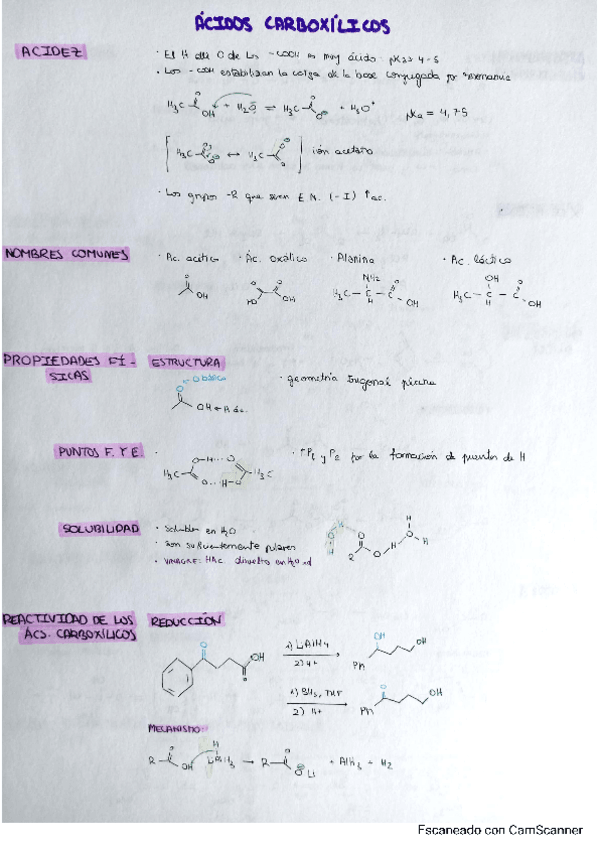 ÁCIDOS CARBOXÍLICOS
ACIDEZ
· El H del O de los -COOH es muy ácido: pKa≈ 4-5
· Los -COOH estabilizan la carga de la base conjugada por resonancia
H₃C OH + H₂O ⇌ H₃C O⊖ + H₃O⁺ pKa = 4,75
[ H₃C O ↔ H₃C O ] ión acetato
· Los grupos -R que sean E.N. (-I) ↑ac.
NOMBRES COMUNES
· Ac. acético · Ác. oxálico · Alanina · Ac. láctico
O OH O HO O OH H₃C - C - C NH₂ H O OH H₃C - C - C OH H O OH
PROPIEDADES FÍ-
SICAS
ESTRUCTURA
O ← O básico
OH ← H ác.
· geometría trigonal plana
PUNTOS F. Y E.
H₃C O-H···O O···H-O C-H₃C
· ↑Pf y Pe por la formación de puentes de H
SOLUBILIDAD
· Solubles en H₂O
· Son suficientemente polares
· VINAGRE: HAc. disuelto en H₂O
REACTIVIDAD DE LOS
ÁCS. CARBOXÍLICOS
REDUCCIÓN
O OH O
1) LiAlH₄
2) H+
OH OH Ph
1) BH₃, THF
2) H+
O OH Ph
MECANISMO
R O OH H LiAlH₃ → R O O⊖ Li + AlH₃ + H₂
Escaneado con CamScanner